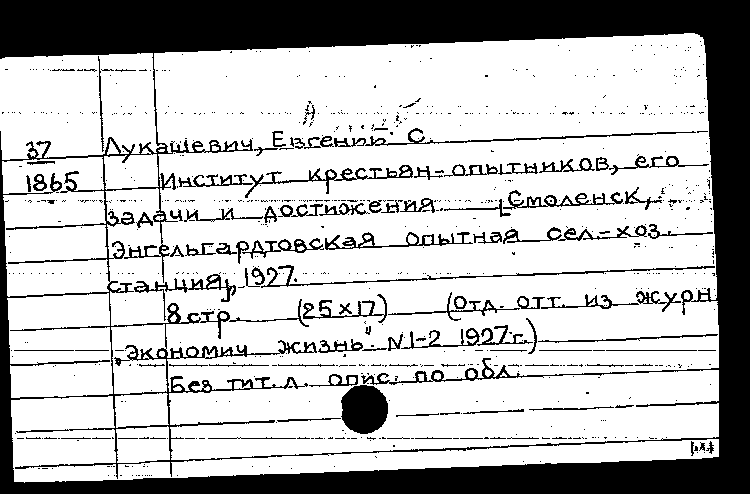 37 Лукашевич, Евгений С.
1865 Институт крестьян-опытников, его
задачи и достижения [Смоленск,
Энгельгардтовская опытная сел.-хоз.
станция], 1927.
8 стр. (25×17) (Отд. отт. из журн.
„Экономич жизнь" N1-2 1927г.)
Без тит. л. опис. по обл.